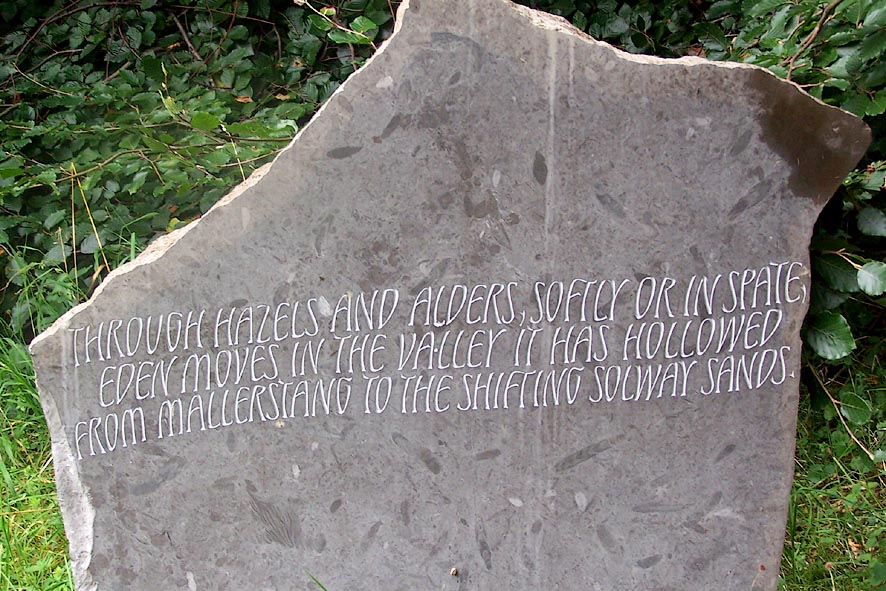 THROUGH HAZELS AND ALDERS, SOFTLY OR IN SPATE,
EDEN MOVES IN THE VALLEY IT HAS HOLLOWED
FROM MALLERSTANG TO THE SHIFTING SOLWAY SANDS.